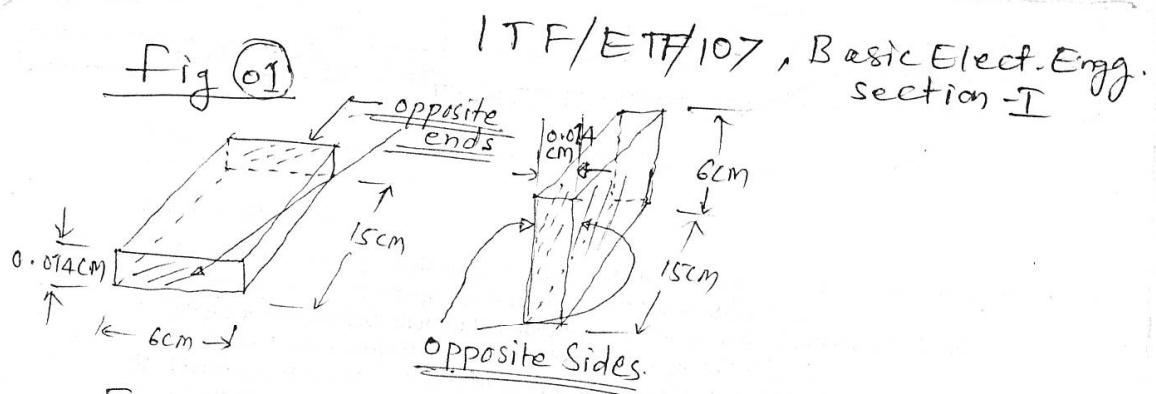 ITF/ETF/107, Basic Elect. Engg.
section-I
Fig 01
opposite
ends
0.014
cm
6cm
15cm
15cm
0.014cm
6cm
opposite Sides.